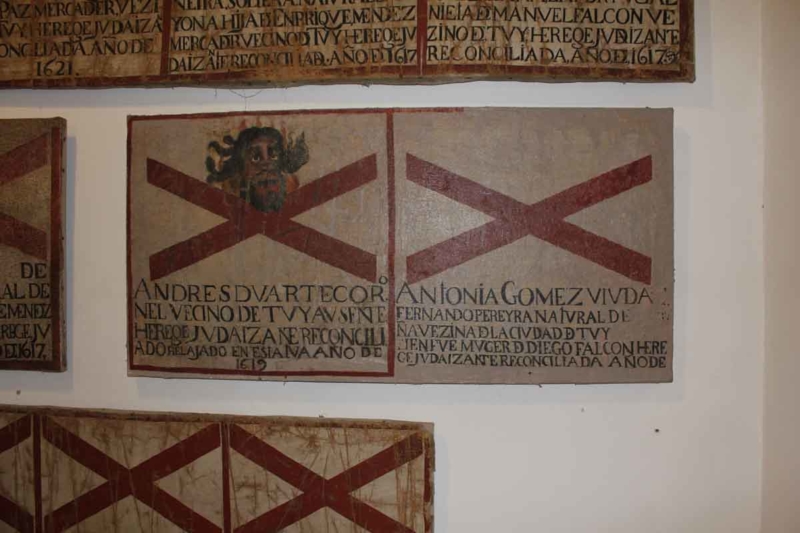 PAZ MERCADER VEZI
TVY HEREQE JVDAIZA
CONCILIADA AÑO DE
1621.
YONA HIJA D ENRRIQVE MENDEZ
MERCADER VECINO D TVY HEREQE JV
DAIZATE RECONCILIADA. AÑO DE 1617
NIETA DE MANVEL FALCON VE
ZINO DE TVY, HEREQE JVDAIZANTE
RECONCILIADA, AÑO, E 1617
DE
RAL DE
EMENEZ
EREGE JV
DE 1617.
ANDRES DVARTE COR.º
NEL VECINO DE TVY AVSENTE
HEREQE JVDAIZANTE RECONCILI
ADO RELAJADO EN ESTATVA AÑO DE
1619
ANTONIA GOMEZ VIVDA
FERNANDO PEREYRA NATVRAL DE
ÑA VEZINA D LA CIVDAD D TVY
IEN FVE MVGER D DIEGO FALCON HERE
GE JVDAIZANTE RECONCILIADA AÑO DE